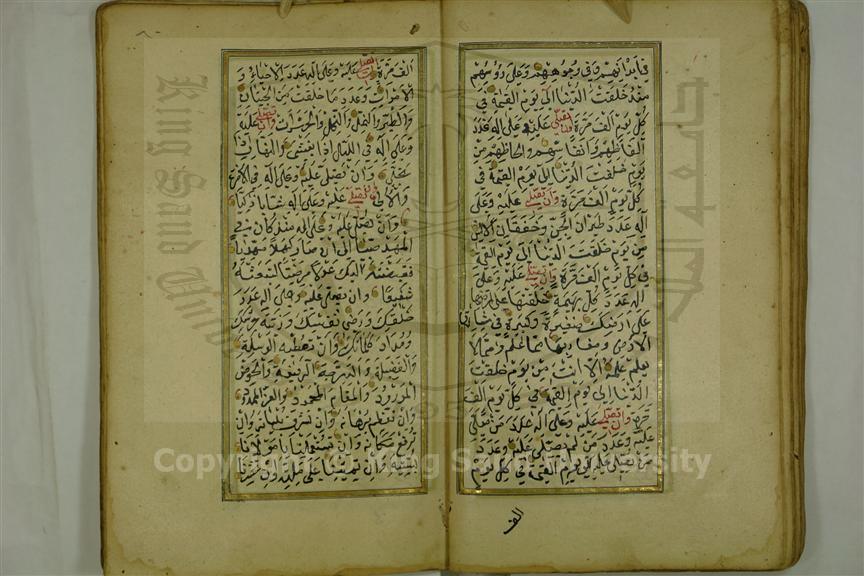 في ابدانهم وفي وجوههم وعلى رؤسهم
منذ خلقت الدنيا الى يوم القيمة في
كل يوم الف مرة وان تصلي عليه وعلى اله عدد
الفاظهم وانفاسهم والحاظهم من
يوم خلقت الدنيا الى يوم القيمة في
كل يوم الف مرة وان تصلي عليه وعلى
اله عدد طيران الجن وخفقان الانس
من يوم خلقت الدنيا الى يوم القيمة
في كل يوم الف مرة وان تصلي عليه وعلى
اله عدد كل بهيمة خلقتها على
ارضك صغيرة وكبيرة في مشارق
الارض ومغاربها مما علم ومما لا
يعلم علمه الا انت من يوم خلقت
الدنيا الى يوم القيمة في كل يوم الف
مرة وان تصلي عليه وعلى اله عدد من صلى
عليه وعدد من لم يصل عليه وعدد
من يصلي عليه الى يوم القيمة في كل يوم
الف
الف مرة وان تصلي عليه وعلى اله عدد الاحياء و
الاموات وعدد ما خلقت من الحيتان
والطير والنمل والنحل والحشرات وان تصلي عليه
وعلى اله في الليل اذا يغشى والنهار اذا
تجلى وان تصلي عليه وعلى اله في الاخرة
والاولى وان تصلي عليه وعلى اله شابا زكيا
وان تصلي عليه وعلى اله منذ كان في
المهد صبيا الى ان صار كهلا مهديا
فقبضته اليك عدلا مرضيا لتبعثه
شفيعا وان تصلي عليه وعلى اله عدد
خلقك ورضى نفسك وزنة عرشك
ومداد كلماتك وان تعطيه الوسيلة
والفضيلة والدرجة الرفيعة والحوض
المورود والمقام المحمود والعز الممدود
وان تعظم برهانه وان تشرف بنيانه وان
ترفع مكانه وان تستعملنا يا مولانا
بسنته وان تميتنا على ملته وان تحشرنا
Copyright © King Saud University
King Saud University
جامعة الملك